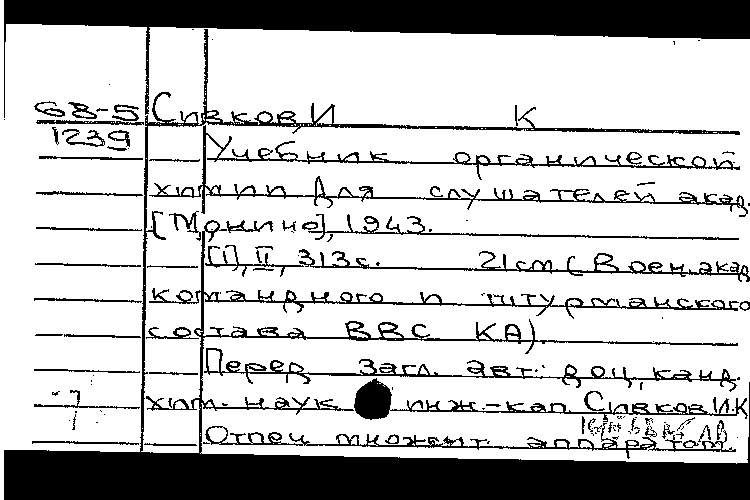 68-5 Сивков, И К
1239 Учебник органической
химии для слушателей акад.
[Монино], 1943.
[I], II, 313с. 21см (Воен. акад
командного и штурманского
состава ВВС КА).
Перед загл. авт.: доц., канд.
7 хим. наук инж.-кап. Сивков И.К
Отпеч множит. аппаратом.